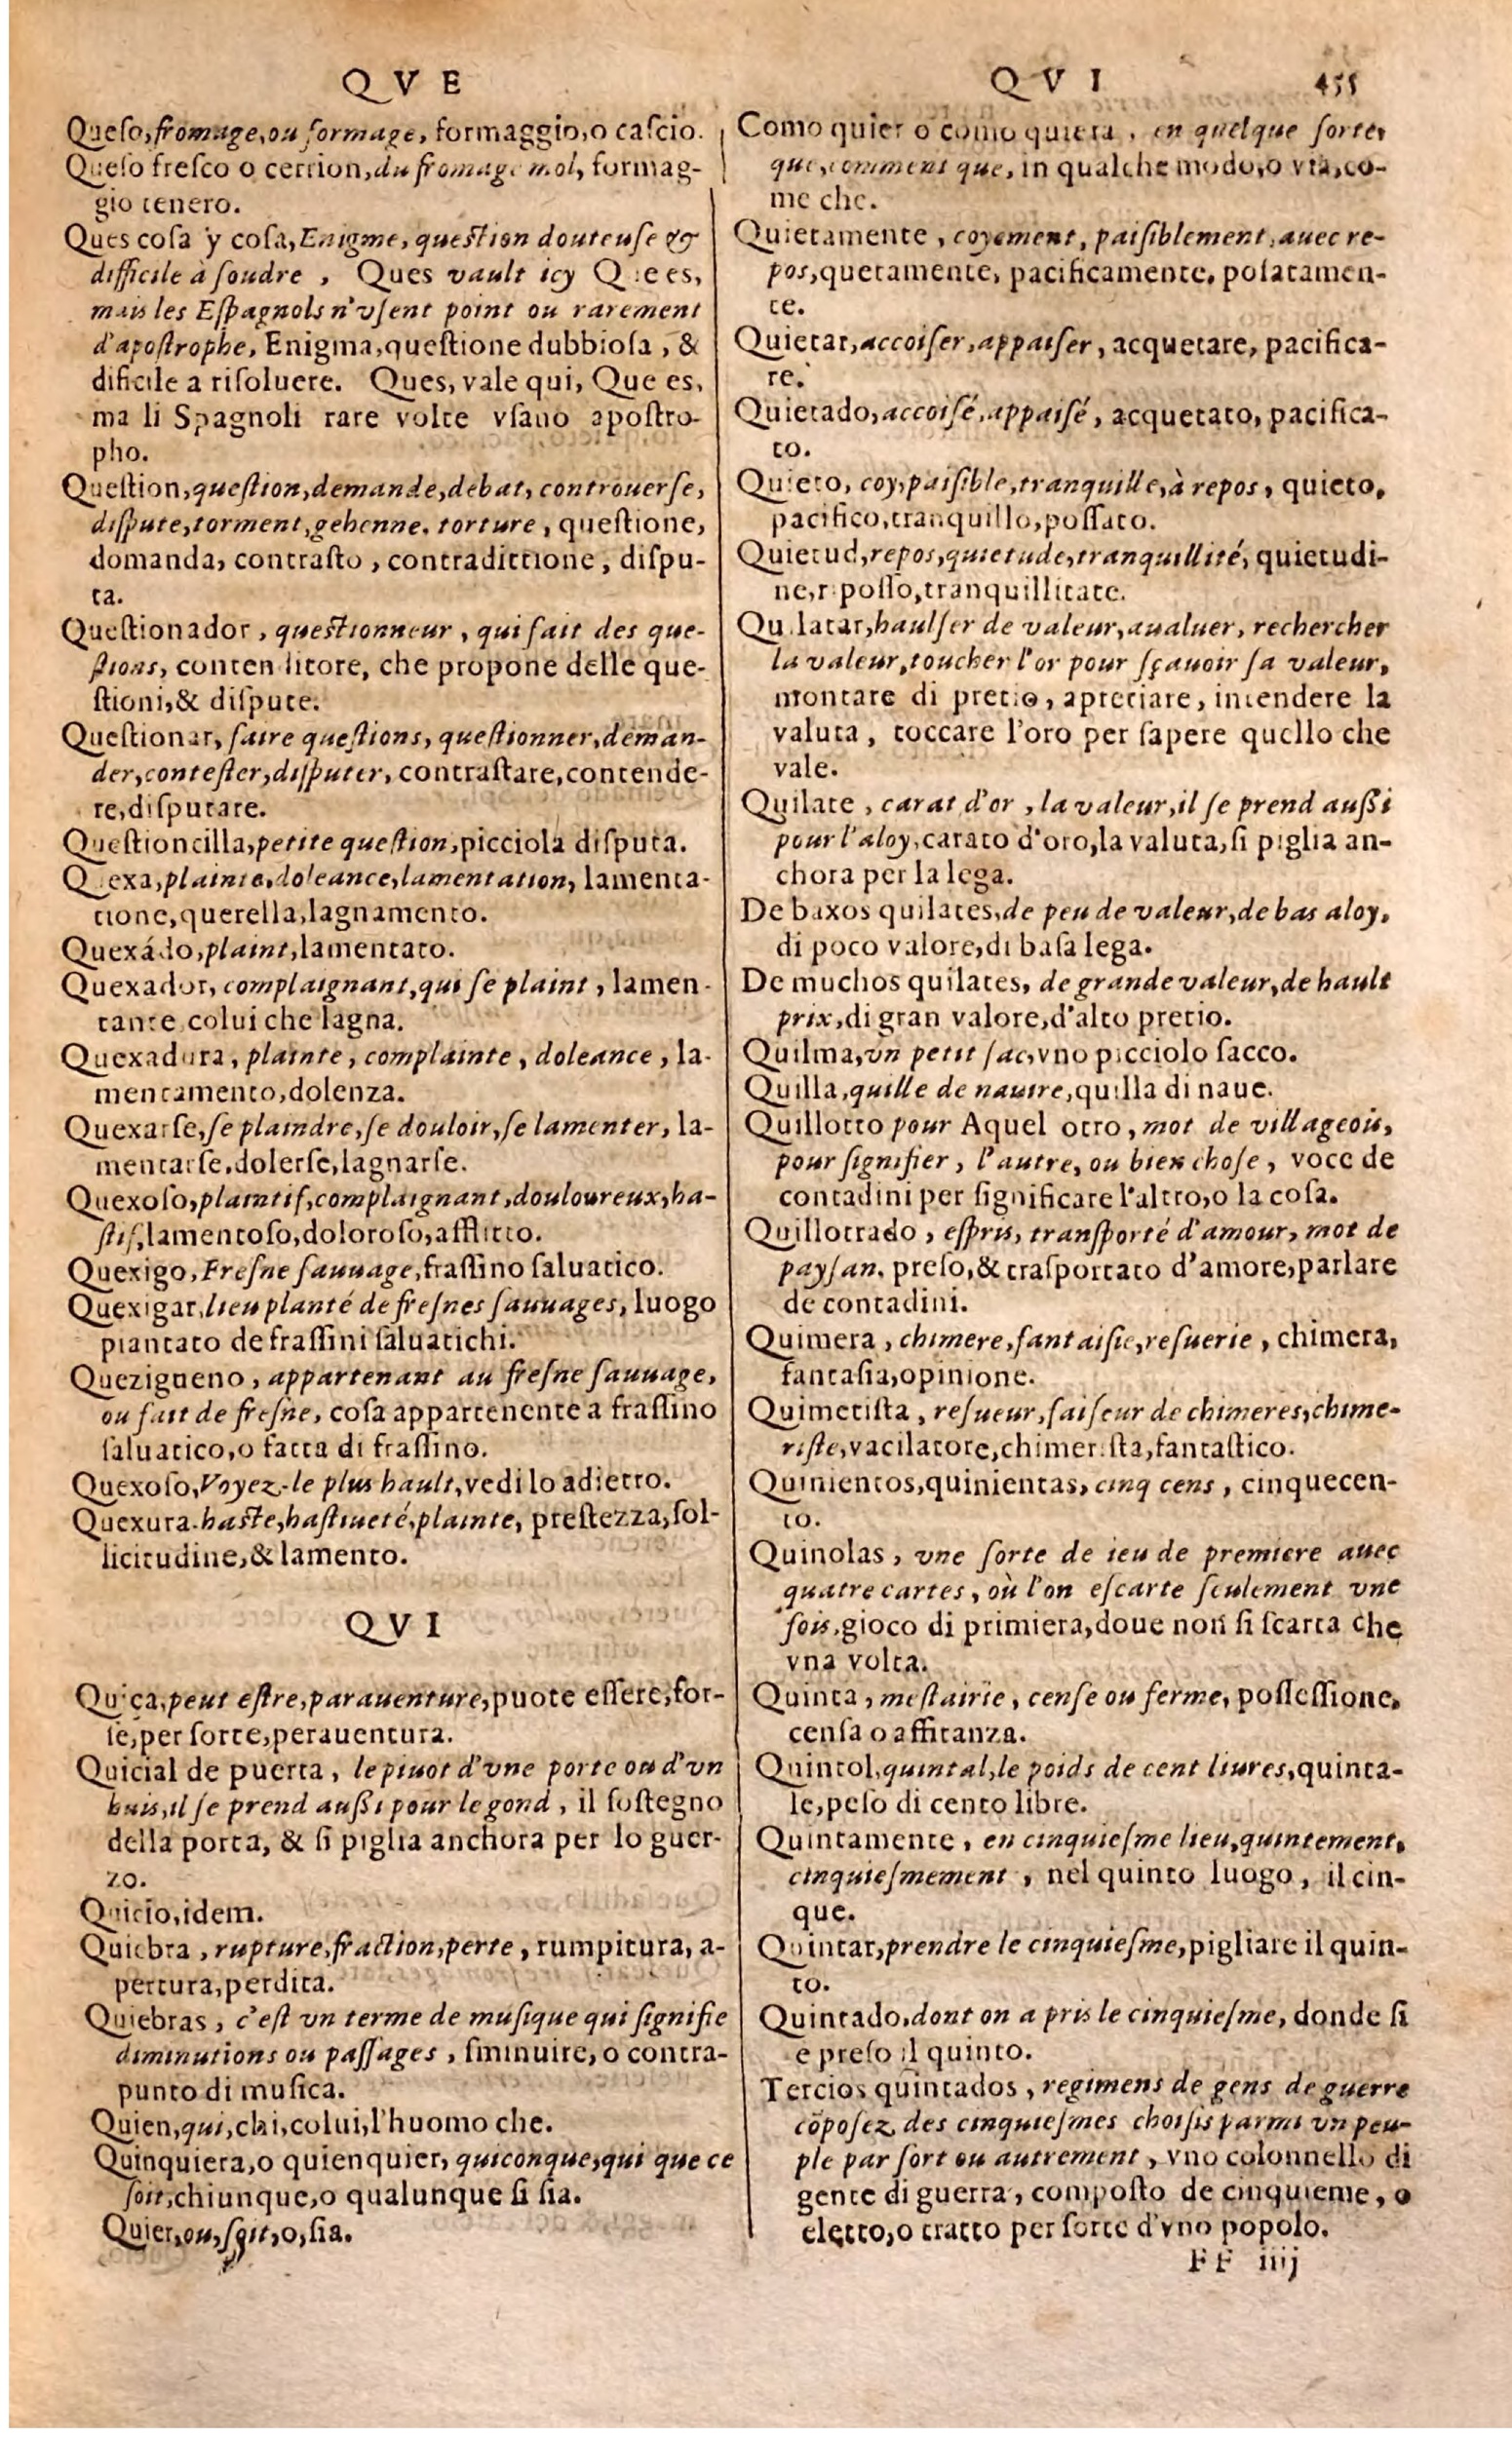 QVE
Queſo, fromage, ou formage, formaggio, o caſcio.
Queſo freſco o cerrion, du fromage mol, formag-
gio tenero.
Ques coſa y coſa, Enigme, question douteuſe &
difficile à ſoudre , Ques vault icy Que es,
mais les Eſpagnols n'vſent point ou rarement
d'apoſtrophe, Enigma, queſtione dubbioſa , &
dificile a riſoluere. Ques, vale qui, Que es,
ma li Spagnoli rare volte vſano apoſtro-
pho.
Queſtion, queſtion, demande, debat, controuerſe,
diſpute, torment, gehenne. torture , queſtione,
domanda, contraſto , contradittione , diſpu-
ta.
Queſtionador , questionneur , qui fait des que-
ſtions, contenditore, che propone delle que-
ſtioni, & diſpute.
Queſtionar, faire queſtions, queſtionner, deman-
der, conteſter, diſputer, contraſtare, contende-
re, diſputare.
Queſtioncilla, petite queſtion, picciola diſputa.
Quexa, plainte, doleance, lamentation, lamenta-
tione, querella, lagnamento.
Quexádo, plaint, lamentato.
Quexador, complaignant, qui ſe plaint , lamen-
tante colui che lagna.
Quexadura, plainte, complainte , doleance , la-
mentamento, dolenza.
Quexarſe, ſe plaindre, ſe douloir, ſe lamenter, la-
mentarſe, dolerſe, lagnarſe.
Quexoſo, plaintif, complaignant, douloureux, ha-
ſtif, lamentoſo, doloroſo, afflitto.
Quexigo, Freſne ſauuage, fraſſino ſaluatico.
Quexigar, lieu planté de freſnes ſauuages, luogo
piantato de fraſſini ſaluatichi.
Quezigueno , appartenant au freſne ſauuage,
ou fait de freſne, coſa appartenente a fraſſino
ſaluatico, o fatta di fraſſino.
Quexoſo, Voyez-le plus hault, vedi lo adietro.
Quexura. haste, haſtiueté, plainte, preſtezza, ſol-
licitudine, & lamento.
QVI
Quiça, peut eſtre, parauenture, puote eſſere, for-
ſe, per ſorte, perauentura.
Quicial de puerta, le piuot d'vne porte ou d'vn
huis, il ſe prend auſſi pour le gond , il ſoſtegno
della porta, & ſi piglia anchora per lo guer-
zo.
Quicio, idem.
Quiebra , rupture, fraction, perte , rumpitura, a-
pertura, perdita.
Quiebras , c'eſt vn terme de muſique qui ſignifie
diminutions ou paſſages , ſminuire, o contra-
punto di muſica.
Quien, qui, chi, colui, l'huomo che.
Quinquiera, o quienquier, quiconque, qui que ce
ſoit, chiunque, o qualunque ſi ſia.
Quier, ou, ſoit, o, ſia.
QVI 455
Como quier o como quiera , en quelque ſorte
que, comment que, in qualche modo, o via, co-
me che.
Quietamente , coyement, paiſiblement, auec re-
pos, quetamente, pacificamente, poſatamen-
te.
Quietar, accoiſer, appaiſer, acquetare, pacifica-
re.
Quietado, accoiſé, appaiſé, acquetato, pacifica-
to.
Quieto, coy, paiſible, tranquille, à repos, quieto,
pacifico, tranquillo, poſſato.
Quietud, repos, quietude, tranquillité, quietudi-
ne, ripoſſo, tranquillitate.
Quilatar, haulſer de valeur, aualuer, rechercher
la valeur, toucher l'or pour ſçauoir ſa valeur,
montare di pretio, apretiare, intendere la
valuta , toccare l'oro per ſapere quello che
vale.
Quilate , carat d'or , la valeur, il ſe prend auſſi
pour l'aloy, carato d'oro, la valuta, ſi piglia an-
chora per la lega.
De baxos quilates, de peu de valeur, de bas aloy,
di poco valore, di baſa lega.
De muchos quilates, de grande valeur, de hault
prix, di gran valore, d'alto pretio.
Quilma, vn petit ſac, vno picciolo ſacco.
Quilla, quille de nauire, quilla di naue.
Quillotto pour Aquel otro , mot de villageois,
pour ſignifier, l'autre, ou bien choſe, voce de
contadini per ſignificare l'altro, o la coſa.
Quillotrado , eſpris, tranſporté d'amour, mot de
payſan. preſo, & traſportato d'amore, parlare
de contadini.
Quimera , chimere, fantaiſie, reſuerie , chimera,
fantaſia, opinione.
Quimeriſta , reſueur, faiſeur de chimeres, chime-
riſte, vacilatore, chimeriſta, fantaſtico.
Quinientos, quinientas, cinq cens , cinquecen-
to.
Quinolas , vne ſorte de ieu de premiere auec
quatre cartes, où l'on eſcarte ſeulement vne
fois, gioco di primiera, doue non ſi ſcarta che
vna volta.
Quinta , meſtairie , cenſe ou ferme, poſſeſſione,
cenſa o affitanza.
Quintol, quintal, le poids de cent liures, quinta-
le, peſo di cento libre.
Quintamente , en cinquieſme lieu, quintement,
cinquieſmement , nel quinto luogo, il cin-
que.
Quintar, prendre le cinquieſme, pigliare il quin-
to.
Quintado, dont on a pris le cinquieſme, donde ſi
e preſo il quinto.
Tercios quintados , regimens de gens de guerre
cõpoſez des cinquieſmes choiſis parmi vn peu-
ple par ſort ou autrement , vno colonnello di
gente di guerra, compoſto de cinquieme, o
eletto, o tratto per ſorte d'vno popolo.
FF iiij